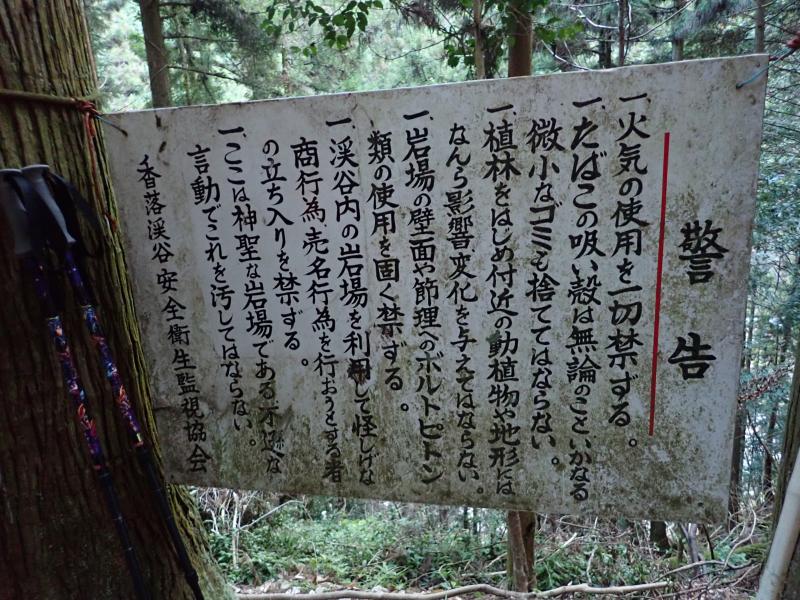 警告
一、火気の使用を一切禁ずる。
一、たばこの吸い殻は無論のこと、いかなる
微小なゴミも捨ててはならない。
一、植林をはじめ付近の動植物や地形には
なんら影響、変化を与えてはならない。
一、岩場の壁面や節理へのボルト、ピトン
類の使用を固く禁ずる。
一、渓谷内の岩場を利用して怪しげな
商行為、売名行為を行おうとする者
の立ち入りを禁ずる。
一、ここは神聖な岩場である。不遜な
言動でこれを汚してはならない。
香落渓谷安全衛生監視協会